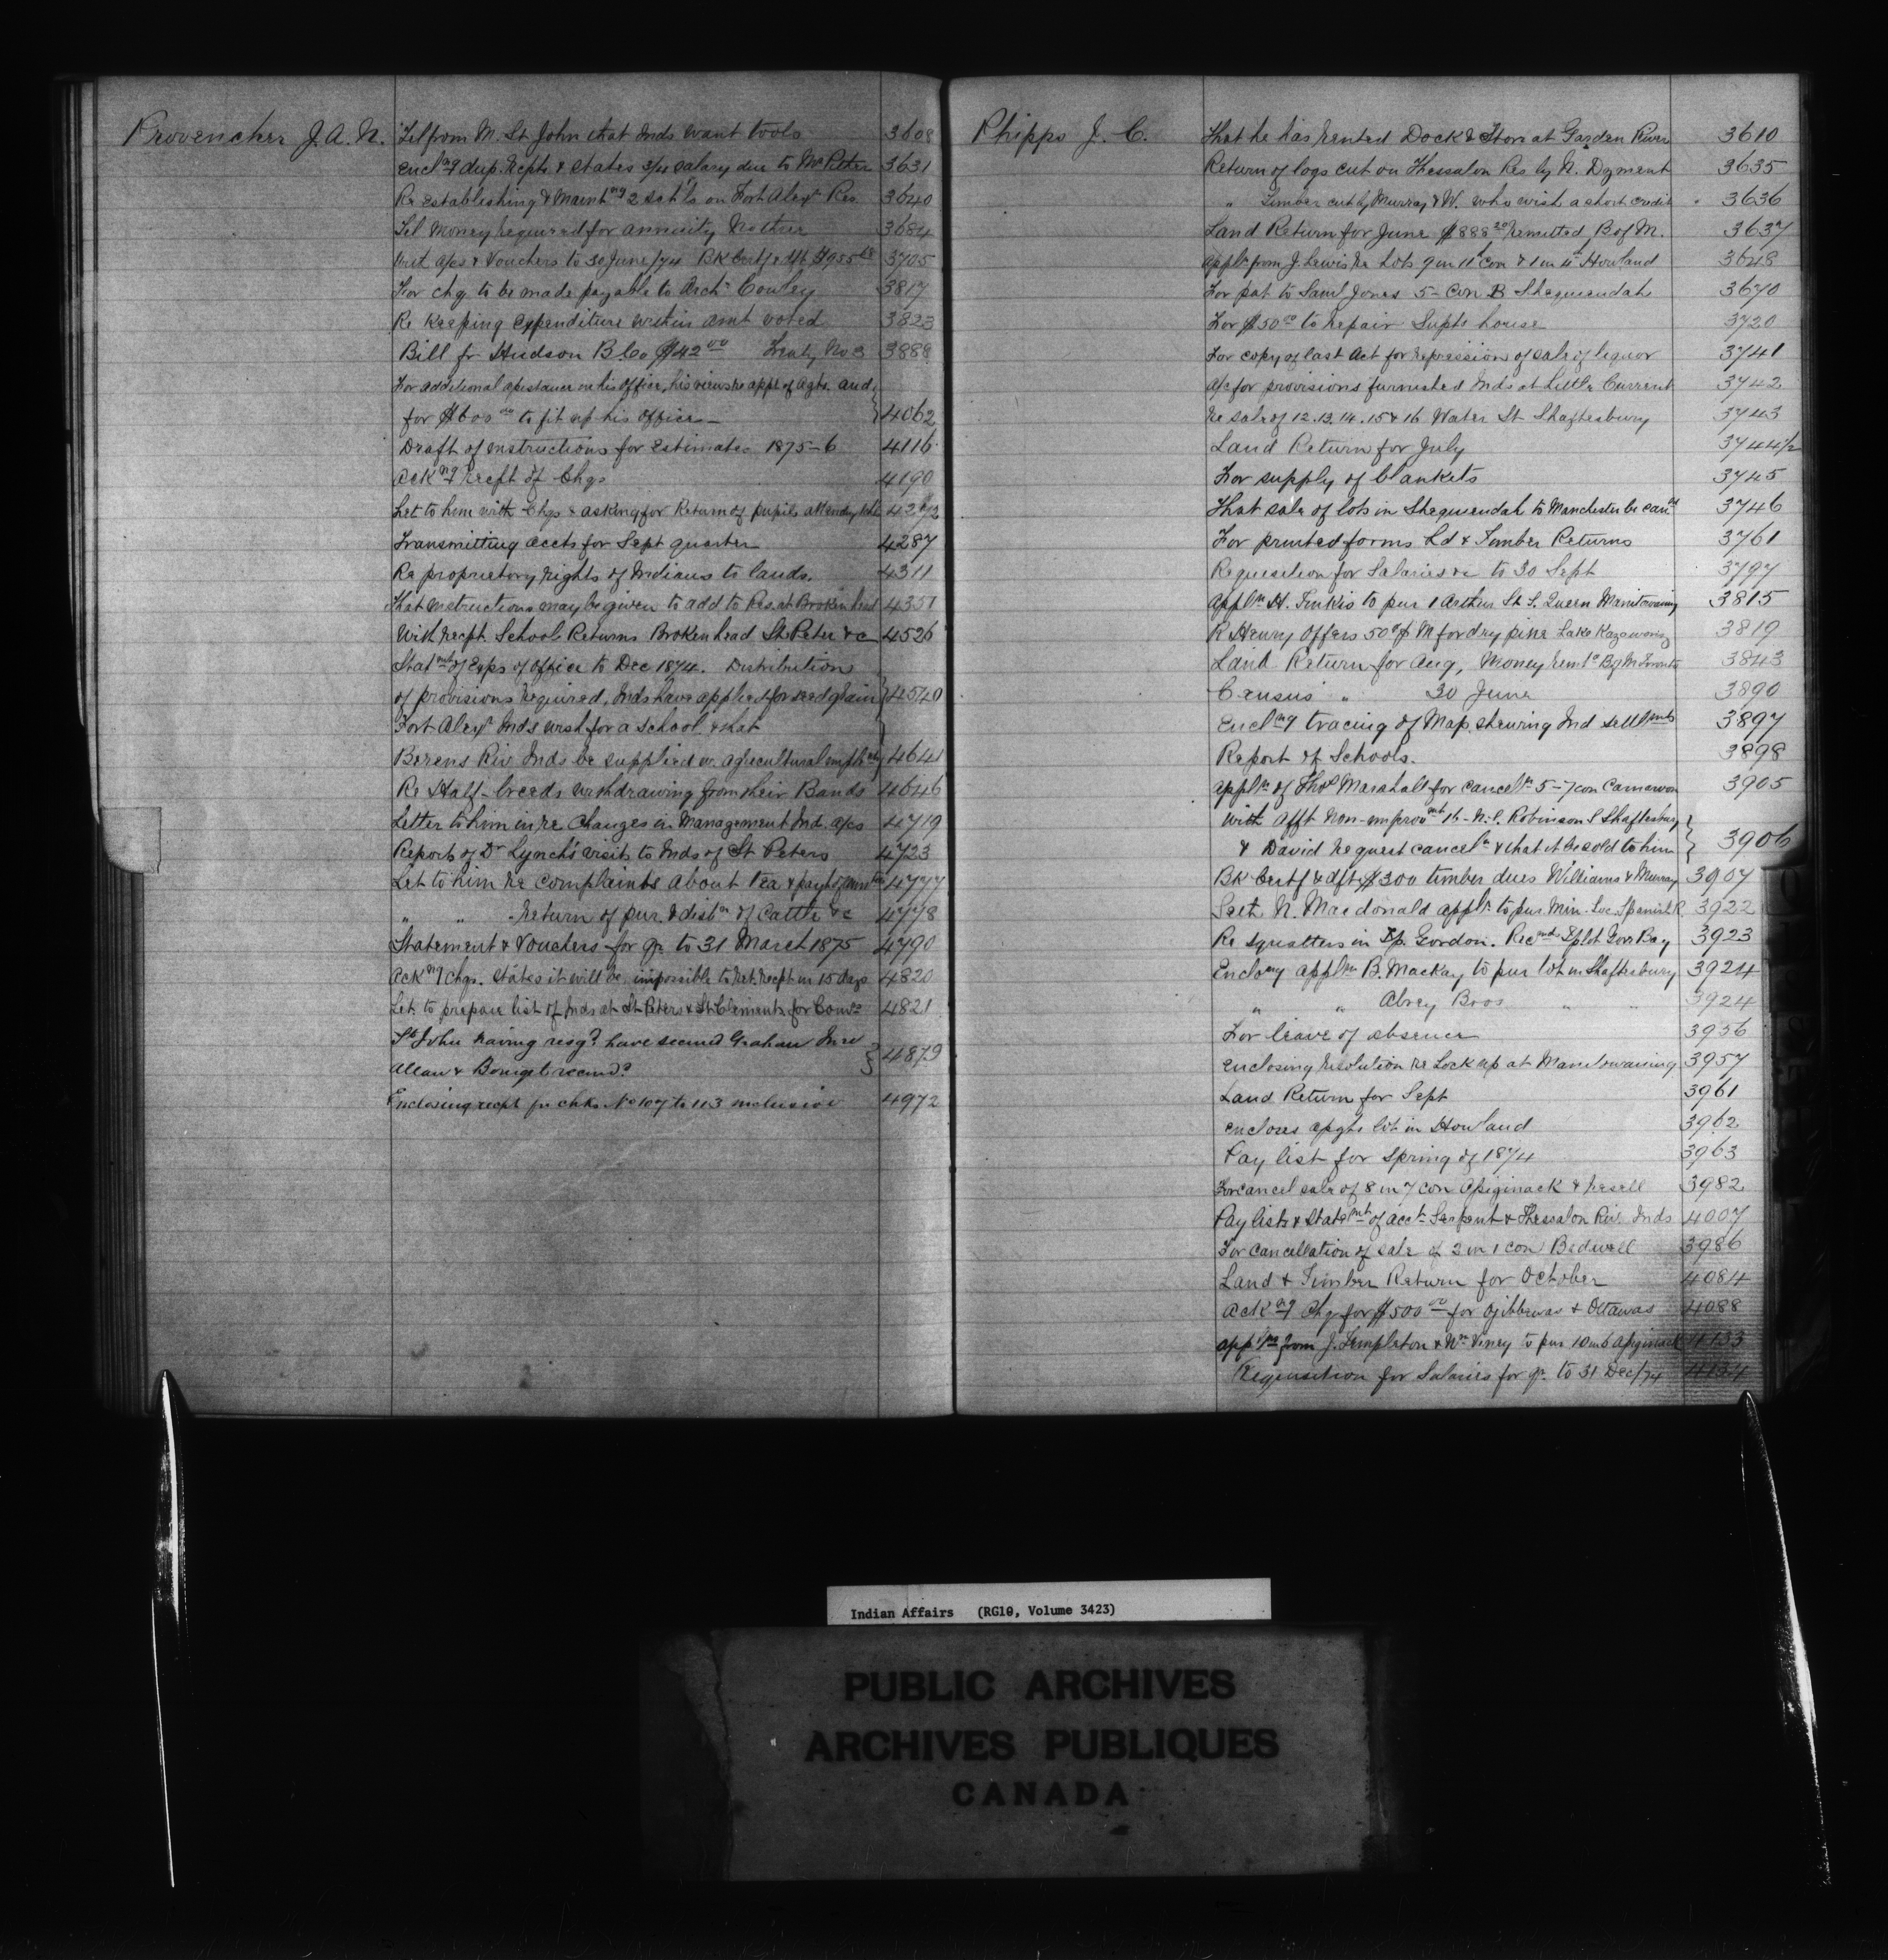 Provencher J. A. N. Tel from M. St. John that Inds want tools 3608
Encl^ng dup. recpts & states 3/4 salary due to Mr Peter 3631
Re establishing & Maint^ng 2 sch'ls on Fort Alex^r Res. 3640
Tel Money required for annuity 3684
a/cs & Vouchers to 30 June/74 Bk Certf & dft 3705
For chq to be made payable to Arch^n Cowley 3817
Re Keeping expenditure within amt voted 3823
Bill fr Hudson B. Co $42 00 Treaty No 3 3888
For additional assistance in his office, his views re appt of Agts. and
for $600 00 to fit up his office 4062
Draft of instructions for Estimates 1875-6 4116
Ack^ng recpt of Chqs 4190
Let to him with Chqs & asking for Return of pupils attending
Transmitting accts for Sept quarter 4287
Re proprietory rights of Indians to lands. 4311
That instructions may be given to add to Res at Broken head 4351
With recpt School Returns Brokenhead St Peter &c 4526
Stat^mt of Exps of Office to Dec 1874. Distribution
of provisions required, Inds have applied for seed grain 4540
Fort Alex^r Inds wish for a school & that
Berens Riv Inds be supplied w. agricultural impl^mts 4641
Re Half-breeds withdrawing from their Bands 4646
Letter to him in re Changes in Management Ind. a/cs 4719
Report of Dr Lynch's visits to Inds of St Peters 4723
Let to him re complaints about Tea & pay^t of 4777
" " Return of pur. & dist^n of Cattle &c 4778
Statement & Vouchers for qr. to 31 March 1875 4790
Ack^ng Chqs. States it will be impossible to ret. recpt in 15 days 4820
Let. to prepare list of Inds at St Peters & St Clements for 4821
St John having resg^d have secured Graham
Allan & 4879
Enclosing recpt for chks No 107 to 113 inclusive 4972
Phipps J. C. That he has rented Dock & Store at Garden River 3610
Return of logs cut on Thessalon Res by N. Dyment 3635
" Timber cut by Murray & W. who wish a short credit 3636
Land Return for June $888 20 remitted B of M. 3637
Appl^n from J. Lewis re Lots 9 in 11^th Con & 1 in 4^th Howland 3648
For pat to Saml Jones 5 - Con B Sheguendah 3670
For $50 00 to repair Supts house 3720
For copy of last Act for repression of sale of liquor 3741
a/c for provisions furnished Inds at Little Current 3742
Re sale of 12.13.14.15 & 16 Water St Shaftesbury 3743
Land Return for July 3744 1/2
For supply of blankets 3745
That sale of lots in Sheguendah to Manchester be can^d 3746
For printed forms Ld & Timber Returns 3761
Requisition for Salaries &c to 30 Sept 3797
Appl^n H. Tinkis to pur 1 Arthur St S. Queen Manitowaning 3815
R Henry offers 50 M for dry pine Lake 3819
Land Return for Aug, Money rem^d B of M Toronto 3843
Census " 30 June 3890
Encl^ng tracing of Map shewing Ind settl^mts 3897
Report of Schools. 3898
Appl^n of Thos Marshall for cancel^n 5-7 con Carnarvon 3905
With Afft Non-improv^mt 16 - N. S. Robinson S Shaftesbury
& David request cancel^n & that it be sold to him 3906
Bk Certf & dft $300 timber dues Williams & Murray 3907
N. Macdonald appl^n to pur Min. Loc. Spanish R. 3922
Re squatters in Tp. Gordon. Rec^mds Gore Bay 3923
Enclo^ng appl^n B. Mackay to pur lot in Shaftesbury 3924
" " Abrey Bros " " 3924
For leave of absence 3956
Enclosing resolution re Lock up at Manitowaning 3957
Land Return for Sept 3961
Encloses lot in Howland 3962
Pay list for Spring of 1874 3963
For cancel sale of 8 in 7 con Assiginack & resell 3982
Pay lists & State^mt of acct Serpent & Thessalon Riv. Inds 4007
For cancellation of sale of 2 in 1 con Bidwell 3986
Land & Timber Return for October 4084
Ack^ng Chq for $500 00 for Ojibbewas & Ottawas 4088
Appl^ns from J. Templeton & Wm Viney to pur 10 in 6 Assiginack 4133
Requisition for Salaries for qr. to 31 Dec/74 4134
Indian Affairs (RG10, Volume 3423)
PUBLIC ARCHIVES
ARCHIVES PUBLIQUES
CANADA